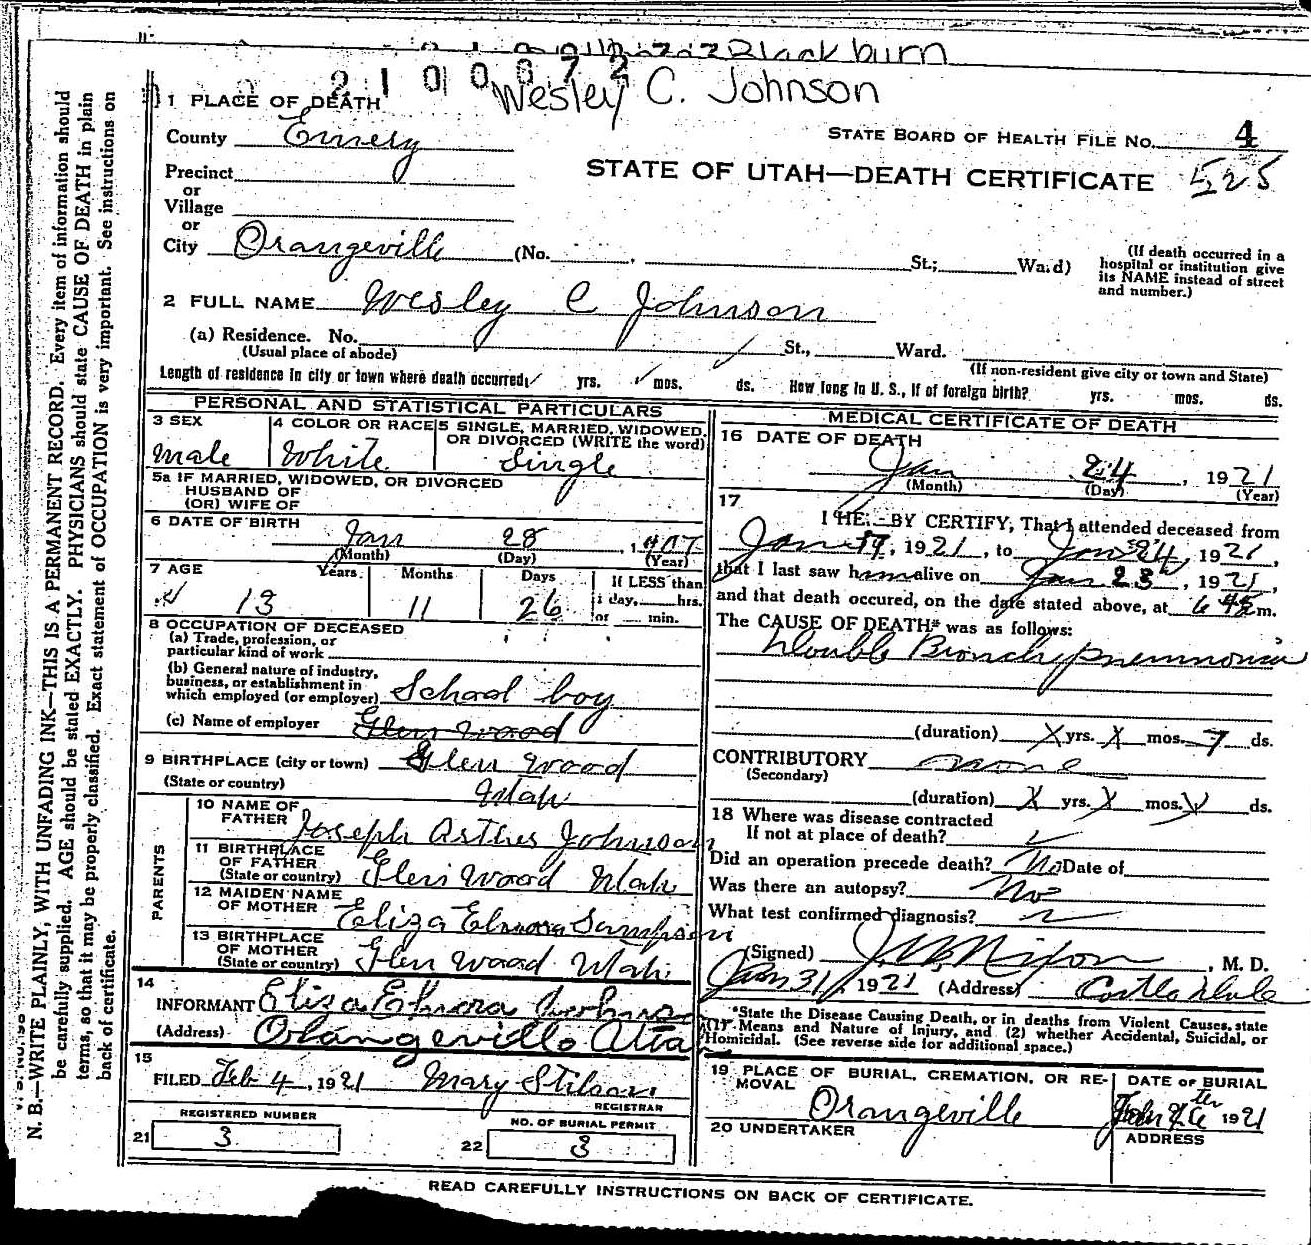 Blackburn
2100672
Wesley C. Johnson
1 PLACE OF DEATH
County Emery
STATE BOARD OF HEALTH FILE No. 4
Precinct
STATE OF UTAH—DEATH CERTIFICATE 525
or
Village
or
City Orangeville (No. , St.; Ward)
(If death occurred in a hospital or institution give its NAME instead of street and number.)
2 FULL NAME Wesley C Johnson
(a) Residence. No. St., Ward.
(Usual place of abode) (If non-resident give city or town and State)
Length of residence in city or town where death occurred yrs. mos. ds. How long in U. S., if of foreign birth? yrs. mos. ds.
PERSONAL AND STATISTICAL PARTICULARS
3 SEX male
4 COLOR OR RACE White
5 SINGLE, MARRIED, WIDOWED, OR DIVORCED (WRITE the word) Single
5a IF MARRIED, WIDOWED, OR DIVORCED
HUSBAND OF
(OR) WIFE OF
6 DATE OF BIRTH
Jan 28, 1907
(Month) (Day) (Year)
7 AGE Years Months Days If LESS than
13 11 26 1 day, hrs.
or min.
8 OCCUPATION OF DECEASED
(a) Trade, profession, or
particular kind of work
(b) General nature of industry,
business, or establishment in
which employed (or employer) School boy
(c) Name of employer Glen wood
9 BIRTHPLACE (city or town) Glen wood
(State or country) Utah
PARENTS
10 NAME OF FATHER Joseph Johnson
11 BIRTHPLACE OF FATHER (State or country) Glen Wood Utah
12 MAIDEN NAME OF MOTHER Eliza Elnora Sampson
13 BIRTHPLACE OF MOTHER (State or country) Glen Wood Utah
14
INFORMANT Eliza Elnora Johnson
(Address) Orangeville
15
FILED Feb 4, 1921 Mary Stilson
REGISTRAR
REGISTERED NUMBER NO. OF BURIAL PERMIT
21 3 22 3
MEDICAL CERTIFICATE OF DEATH
16 DATE OF DEATH
Jan 24, 1921
(Month) (Day) (Year)
17
I HEREBY CERTIFY, That I attended deceased from
Jan 17, 1921, to Jan 24, 1921,
that I last saw him alive on Jan 23, 1921,
and that death occured, on the date stated above, at 6 45 m.
The CAUSE OF DEATH* was as follows:
Double Bronch pneumonia
(duration) X yrs. X mos. 7 ds.
CONTRIBUTORY none
(Secondary)
(duration) X yrs. X mos. ds.
18 Where was disease contracted
If not at place of death?
Did an operation precede death? No Date of
Was there an autopsy? No
What test confirmed diagnosis?
(Signed) J. W. Nixon, M. D.
Jan 31, 1921 (Address) Castle Dale
*State the Disease Causing Death, or in deaths from Violent Causes, state
(1) Means and Nature of Injury, and (2) whether Accidental, Suicidal, or
Homicidal. (See reverse side for additional space.)
19 PLACE OF BURIAL, CREMATION, OR RE-
MOVAL
Orangeville
DATE OF BURIAL
1921
20 UNDERTAKER
ADDRESS
READ CAREFULLY INSTRUCTIONS ON BACK OF CERTIFICATE.
N. B.—WRITE PLAINLY, WITH UNFADING INK—THIS IS A PERMANENT RECORD. Every item of information should
be carefully supplied. AGE should be stated EXACTLY. PHYSICIANS should state CAUSE OF DEATH in plain
terms, so that it may be properly classified. Exact statement of OCCUPATION is very important. See instructions on
back of certificate.